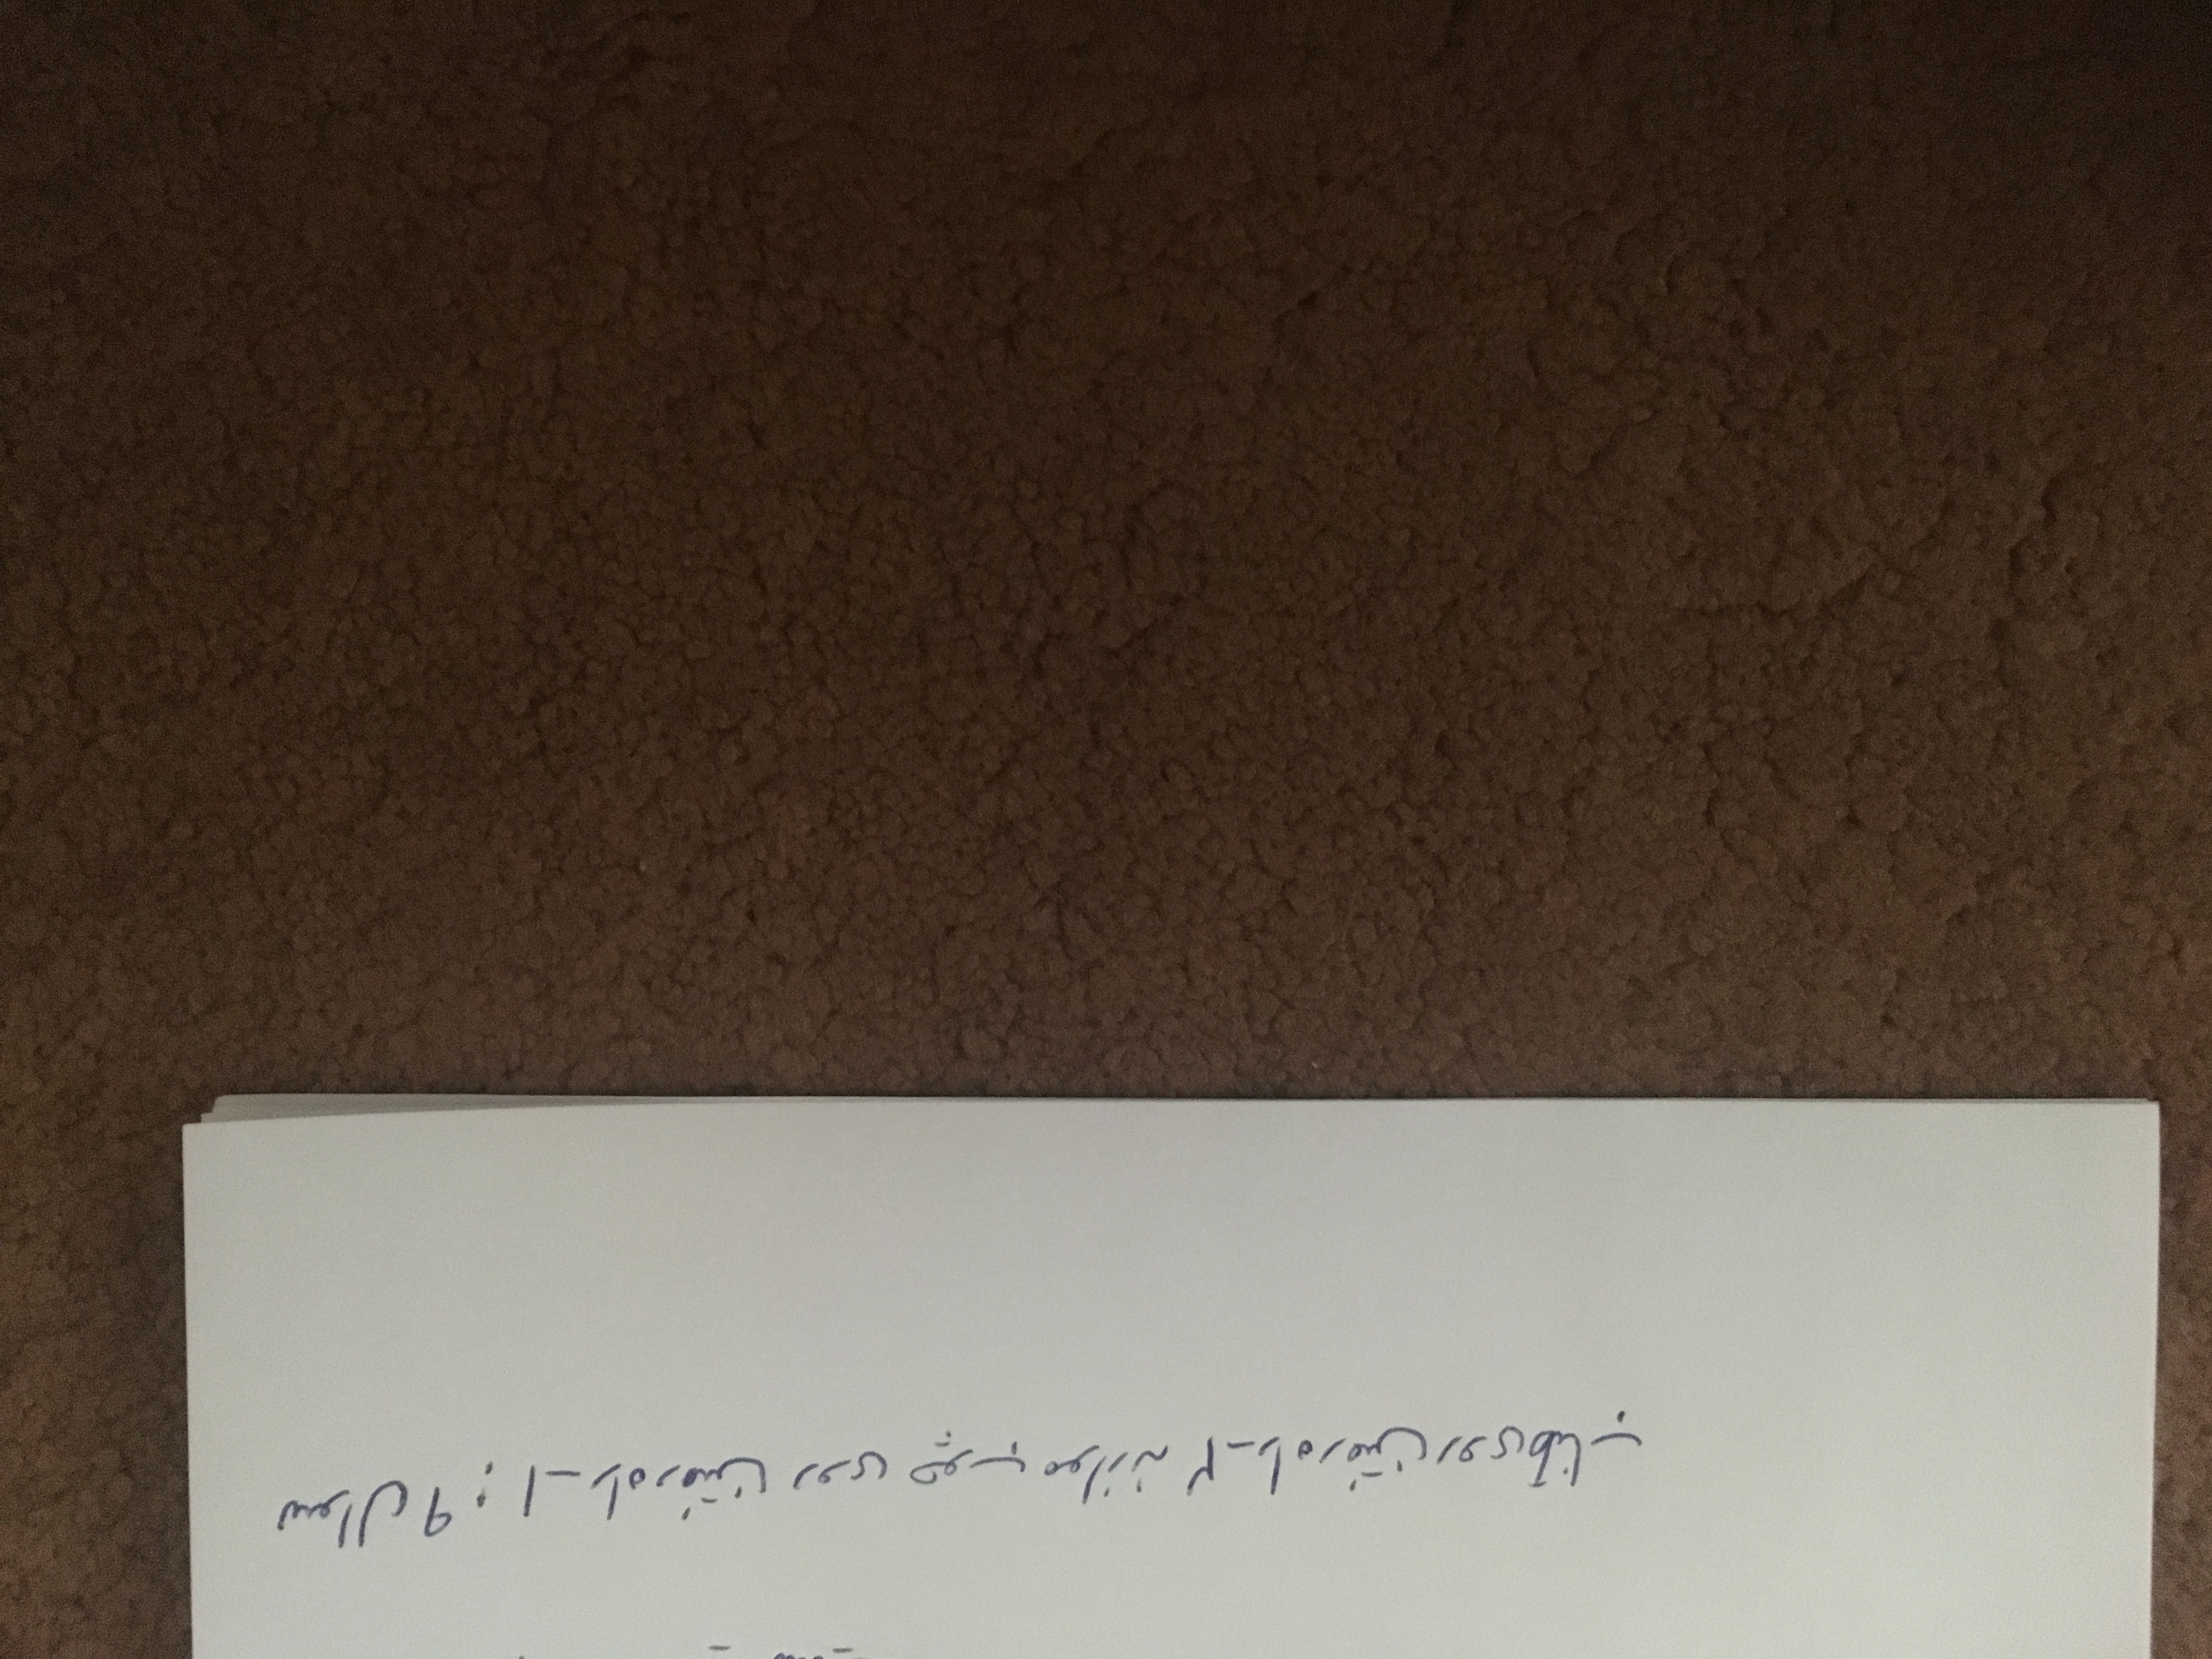 سوال ۹ : ۱_ راه رفتن روی چوب موازنه ۲_ راه رفتن روی طناب